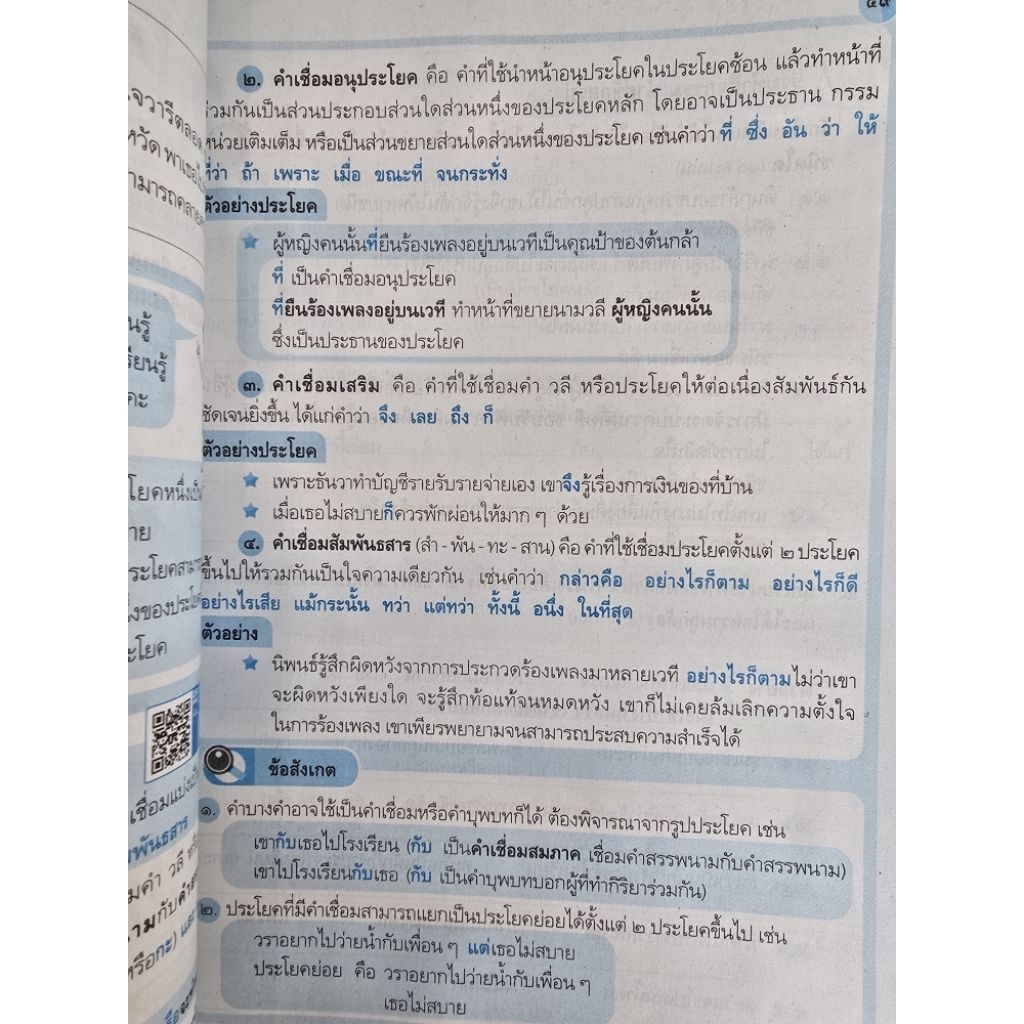 ๔๙
๒. คำเชื่อมอนุประโยค คือ คำที่ใช้นำหน้าอนุประโยคในประโยคซ้อน แล้วทำหน้าที่
ร่วมกันเป็นส่วนประกอบส่วนใดส่วนหนึ่งของประโยคหลัก โดยอาจเป็นประธาน กรรม
หน่วยเติมเต็ม หรือเป็นส่วนขยายส่วนใดส่วนหนึ่งของประโยค เช่นคำว่า ที่ ซึ่ง อัน ว่า ให้
ที่ว่า ถ้า เพราะ เมื่อ ขณะที่ จนกระทั่ง
ตัวอย่างประโยค
ผู้หญิงคนนั้นที่ยืนร้องเพลงอยู่บนเวทีเป็นคุณป้าของต้นกล้า
ที่ เป็นคำเชื่อมอนุประโยค
ที่ยืนร้องเพลงอยู่บนเวที ทำหน้าที่ขยายนามวลี ผู้หญิงคนนั้น
ซึ่งเป็นประธานของประโยค
๓. คำเชื่อมเสริม คือ คำที่ใช้เชื่อมคำ วลี หรือประโยคให้ต่อเนื่องสัมพันธ์กัน
ชัดเจนยิ่งขึ้น ได้แก่คำว่า จึง เลย ถึง ก็
ตัวอย่างประโยค
เพราะธันวาทำบัญชีรายรับรายจ่ายเอง เขาจึงรู้เรื่องการเงินของที่บ้าน
เมื่อเธอไม่สบายก็ควรพักผ่อนให้มาก ๆ ด้วย
๔. คำเชื่อมสัมพันธสาร (สำ - พัน - ทะ - สาน) คือ คำที่ใช้เชื่อมประโยคตั้งแต่ ๒ ประโยค
ขึ้นไปให้รวมกันเป็นใจความเดียวกัน เช่นคำว่า กล่าวคือ อย่างไรก็ตาม อย่างไรก็ดี
อย่างไรเสีย แม้กระนั้น ทว่า แต่ทว่า ทั้งนี้ อนึ่ง ในที่สุด
ตัวอย่าง
นิพนธ์รู้สึกผิดหวังจากการประกวดร้องเพลงมาหลายเวที อย่างไรก็ตามไม่ว่าเขา
จะผิดหวังเพียงใด จะรู้สึกท้อแท้จนหมดหวัง เขาก็ไม่เคยล้มเลิกความตั้งใจ
ในการร้องเพลง เขาเพียรพยายามจนสามารถประสบความสำเร็จได้
ข้อสังเกต
๑. คำบางคำอาจใช้เป็นคำเชื่อมหรือคำบุพบทก็ได้ ต้องพิจารณาจากรูปประโยค เช่น
เขากับเธอไปโรงเรียน (กับ เป็นคำเชื่อมสมภาค เชื่อมคำสรรพนามกับคำสรรพนาม)
เขาไปโรงเรียนกับเธอ (กับ เป็นคำบุพบทบอกผู้ที่ทำกิริยาร่วมกัน)
๒. ประโยคที่มีคำเชื่อมสามารถแยกเป็นประโยคย่อยได้ตั้งแต่ ๒ ประโยคขึ้นไป เช่น
วราอยากไปว่ายน้ำกับเพื่อน ๆ แต่เธอไม่สบาย
ประโยคย่อย คือ วราอยากไปว่ายน้ำกับเพื่อน ๆ
เธอไม่สบาย